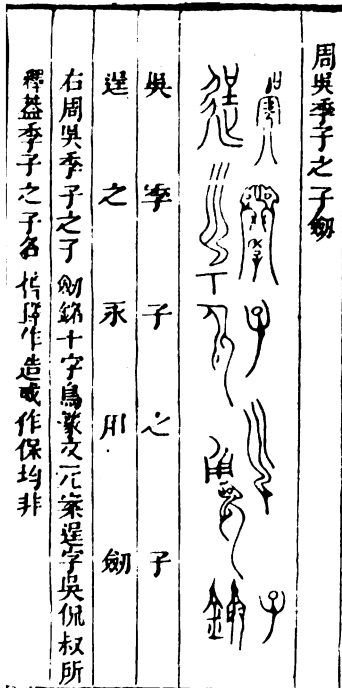 周吳季子之子劍
吳季子之子
逞之永用劍
右周吳季子之子劍銘十字鳥篆文元案逞字吳侃叔所
釋葢季子之子名釋作造或作保均非